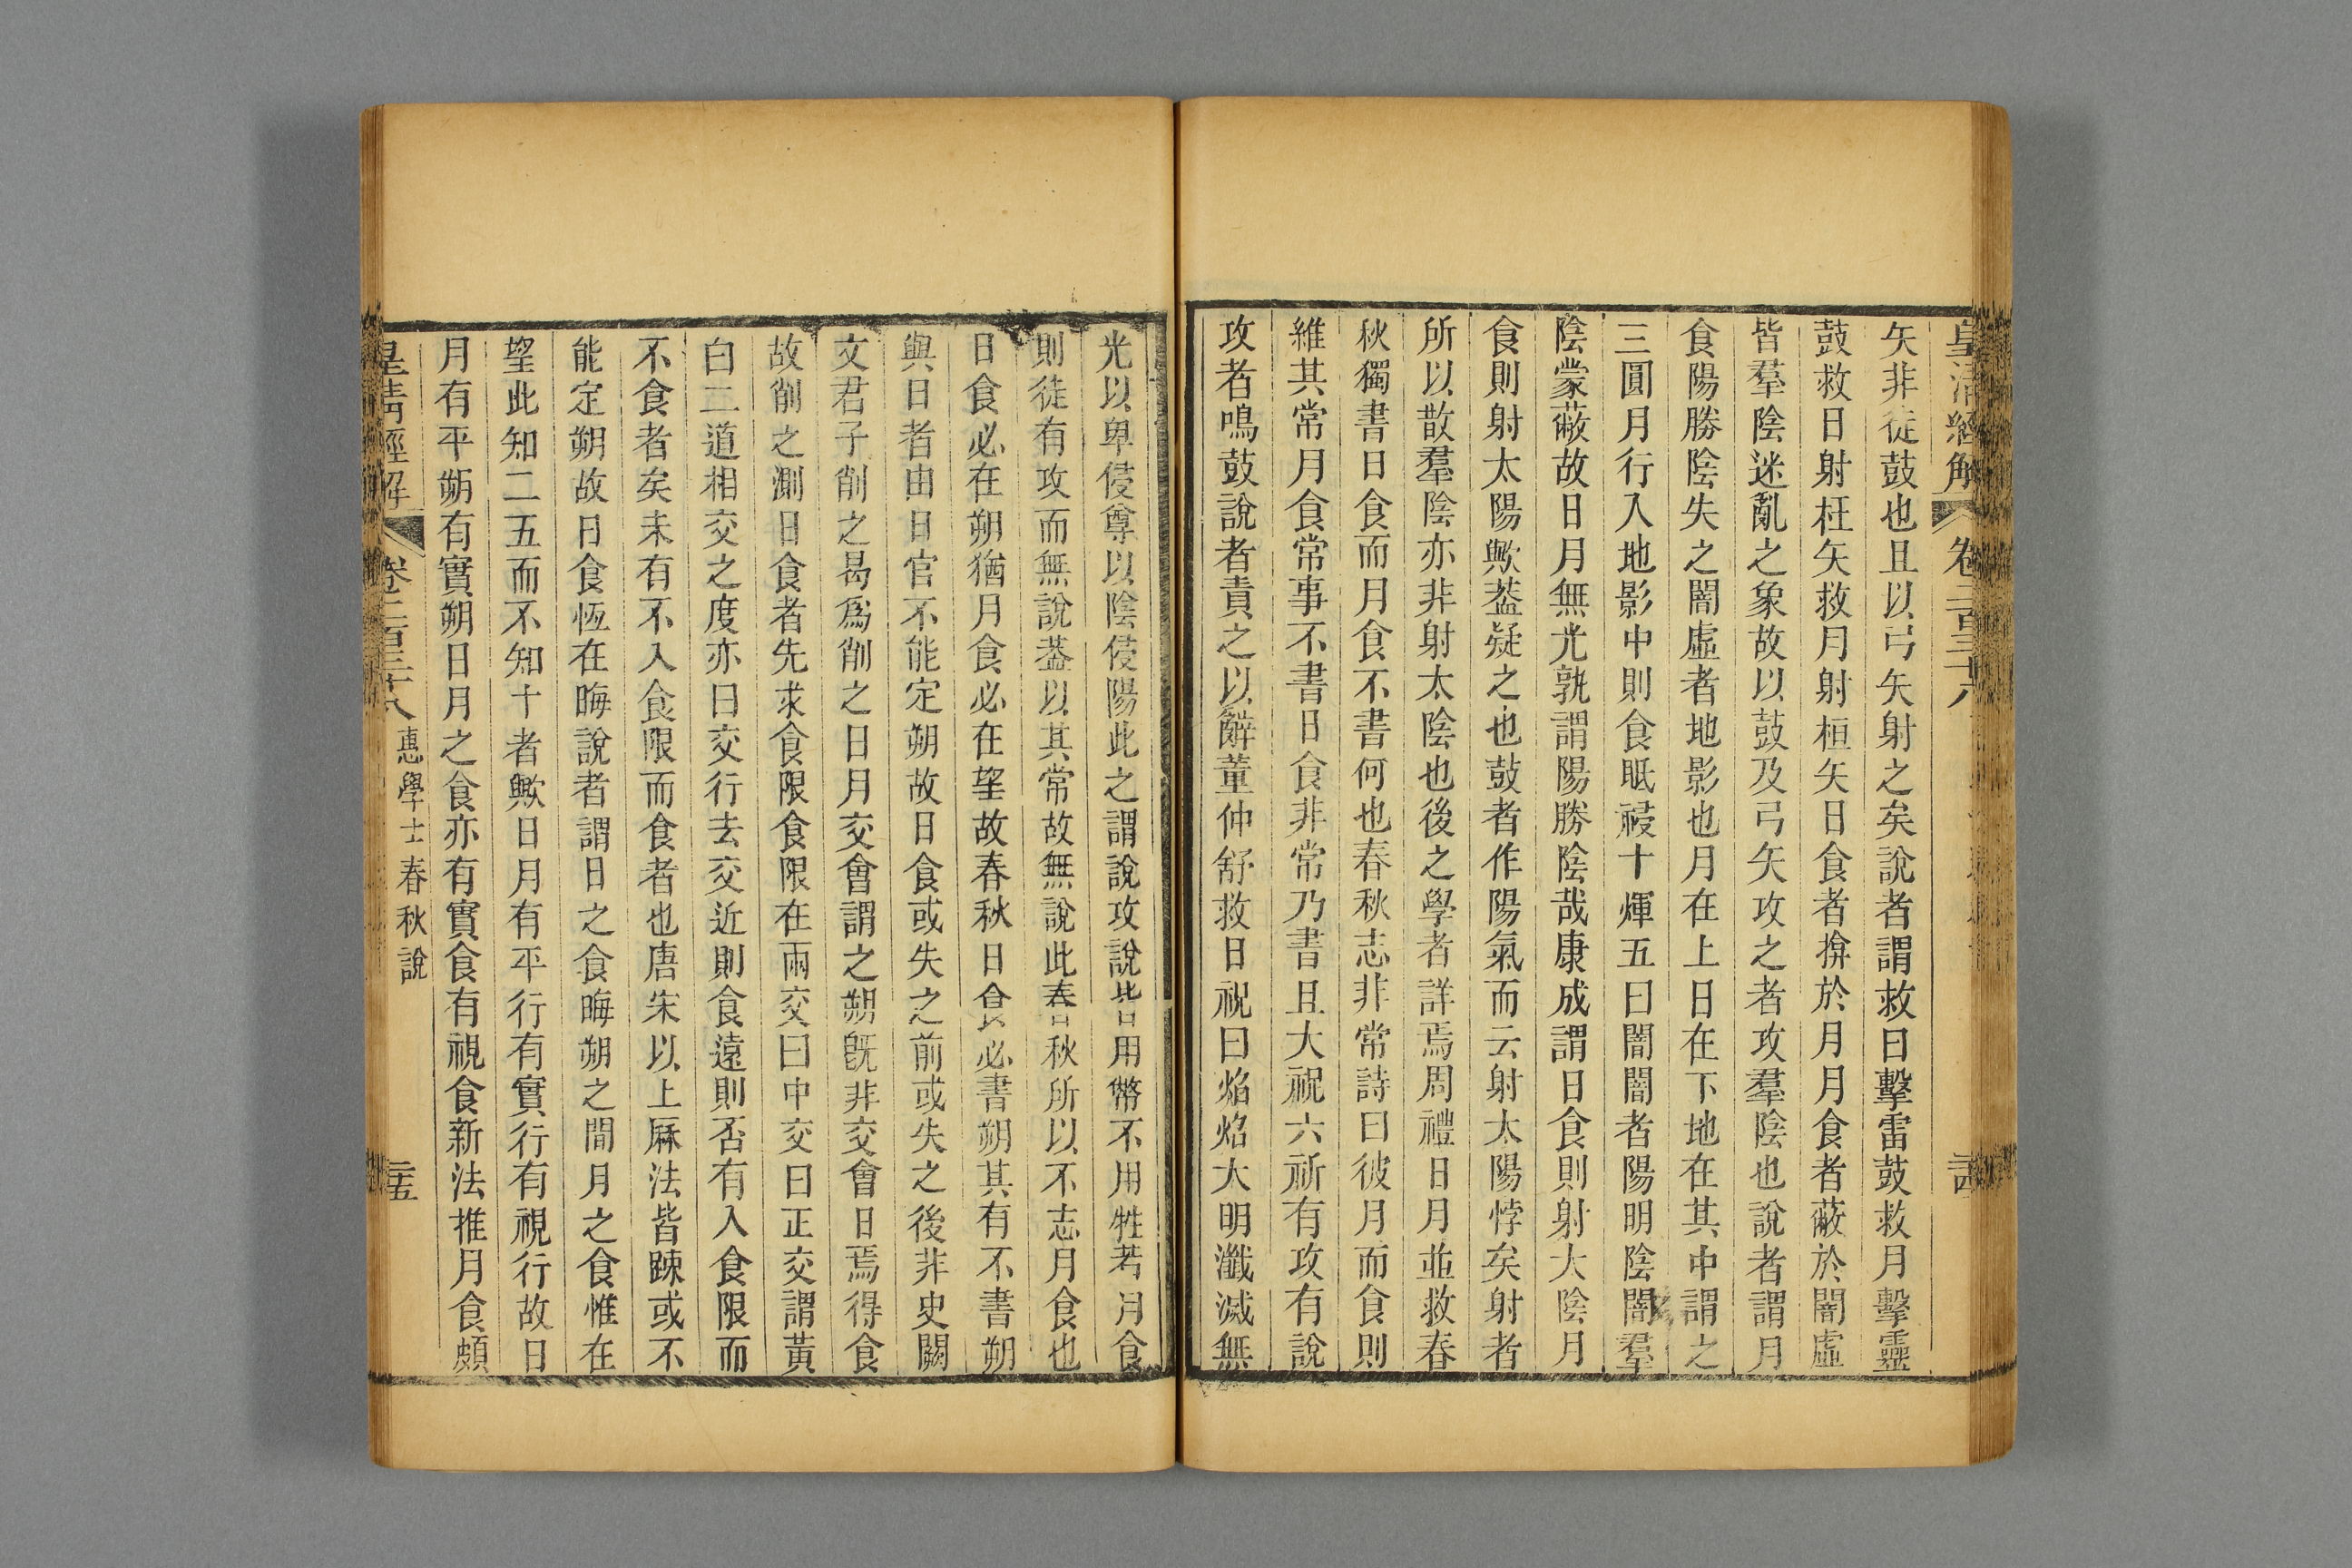 皇清經解 卷二百三十八
矢非徒鼓也且以弓矢射之矣說者謂救日擊雷鼓救月擊靈
鼓救日射枉矢救月射桓矢日食者揜於月月食者蔽於闇虛
皆羣陰迷亂之象故以鼓及弓矢攻之者攻羣陰也說者謂月
食陽勝陰失之闇虛者地影也月在上日在下地在其中謂之
三圓月行入地影中則食眡祲十煇五曰闇闇者陽明陰闇羣
陰蒙蔽故日月無光孰謂陽勝陰哉康成謂日食則射大陰月
食則射太陽歟葢疑之也鼓者作陽氣而云射太陽悖矣射者
所以散羣陰亦非射太陰也後之學者詳焉周禮日月並救春
秋獨書日食而月食不書何也春秋志非常詩曰彼月而食則
維其常月食常事不書日食非常乃書且大祝六祈有攻有說
攻者鳴鼓說者責之以辭董仲舒救日祝曰焰焰大明瀸滅無
光以卑侵尊以陰侵陽此之謂說攻說皆用幣不用牲若月食
則徒有攻而無說葢以其常故無說此春秋所以不志月食也
日食必在朔猶月食必在望故春秋日食必書朔其有不書朔
與日者由日官不能定朔故日食或失之前或失之後非史闕
文君子削之曷爲削之日月交會謂之朔旣非交會日焉得食
故削之測日食者先求食限食限在兩交曰中交曰正交謂黃
白二道相交之度亦曰交行去交近則食遠則否有入食限而
不食者矣未有不入食限而食者也唐宋以上厤法皆踈或不
能定朔故日食恆在晦說者謂日之食晦朔之間月之食惟在
望此知二五而不知十者歟日月有平行有實行有視行故日
月有平朔有實朔日月之食亦有實食有視食新法推月食頗
皇清經解 卷二百三十八 惠學士春秋說 三五